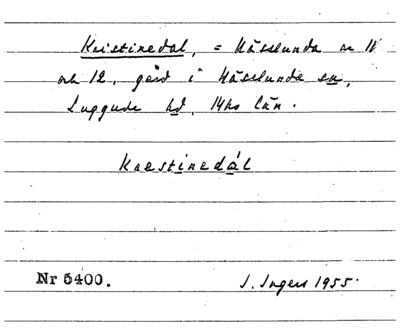 Kristinedal, = Hässlunda nr 11
och 12, gård i Hässlunda sn,
Luggude hd, Mhs län.
Krestinedál
Nr 5400. J. Ingers 1955.